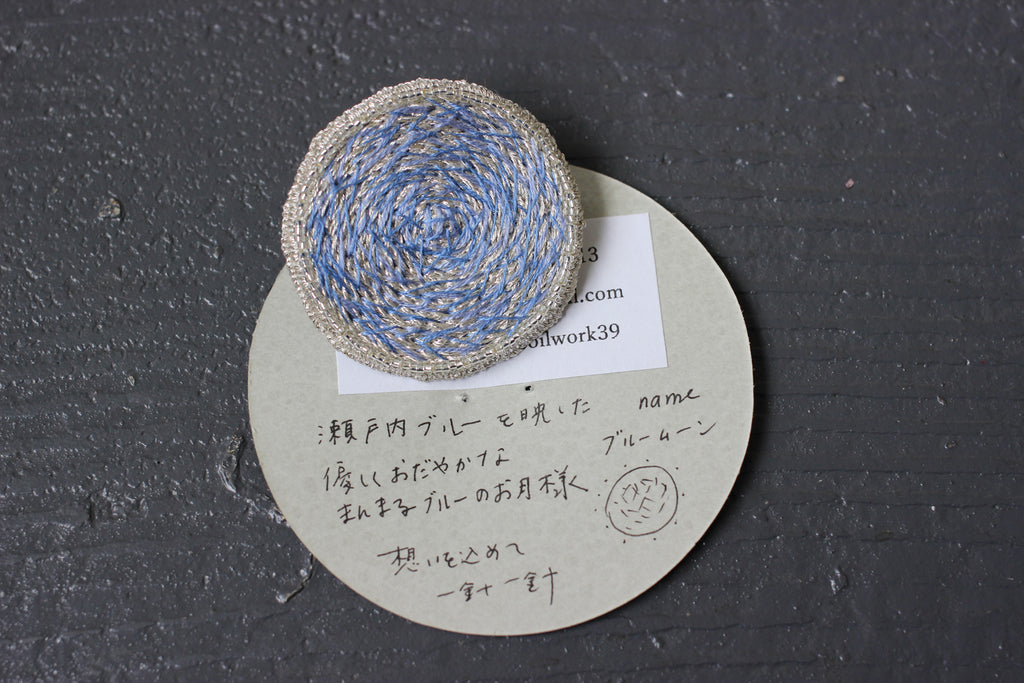 13
.com
oilwork39
瀬戸内ブルーを映した
優しくおだやかな
まんまるブルーのお月様く
name
ブルームーン
想いを込めて
一針一針